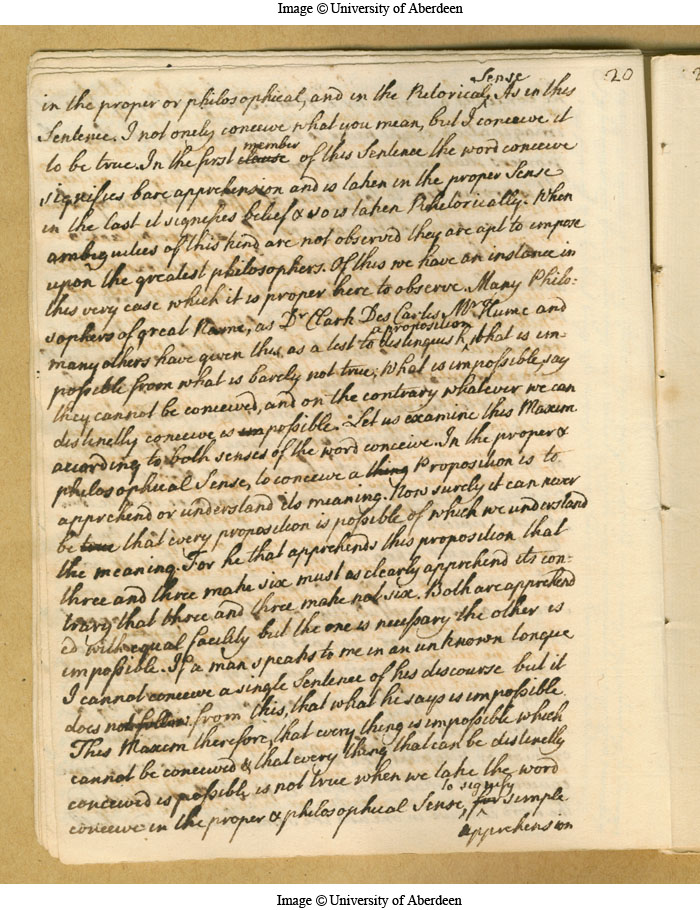 Image © University of Aberdeen
20
in the proper or philosophical, and in the Retorical Sense. As in this
Sentence. I not onely conceive what you mean, but I conceive it
to be true. In the first clause member of this Sentence the word conceive
signifies bare apprehension and is taken in the proper Sense
in the last it signifies belief & so is taken Rhetorically. When
ambiguities of this kind are not observed they are apt to impose
upon the greatest philosophers. Of this we have an instance in
this very case which it is proper here to observe. Many Philo-
sophers of great Name, as Dr Clark Des Cartes Mr Hume and
many others have given this as a test to distinguish a proposition that is im-
possible from what is barely not true; What is impossible, say
they cannot be conceived, and on the contrary whatever we can
distinctly conceive is impossible. Let us examine this Maxim
according to both senses of the word conceive. In the proper &
philosophical Sense, to conceive a thing Proposition is to
apprehend or understand its meaning. Now surely it can never
be true that every proposition is possible of which we understand
the meaning. For he that apprehends this proposition that
three and three make six must as clearly apprehend its con-
trary that three and three make not six. Both are apprehend
ed with equal facility but the one is necessary the other is
impossible. If a man speaks to me in an unknown tongue
I cannot conceive a single Sentence of his discourse but it
does not follow from this, that what he says is impossible.
This Maxim therefore, that every thing is impossible which
cannot be conceived & that every thing that can be distinctly
conceived is possible, is not true when we take the word
conceive in the proper & philosophical Sense, for to signify simple
apprehension
Image © University of Aberdeen